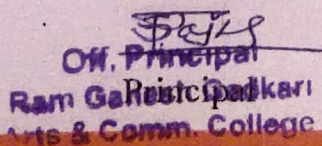 Off. Principal
Principal
Ram Ganesh Gadkari
Arts & Comm. College